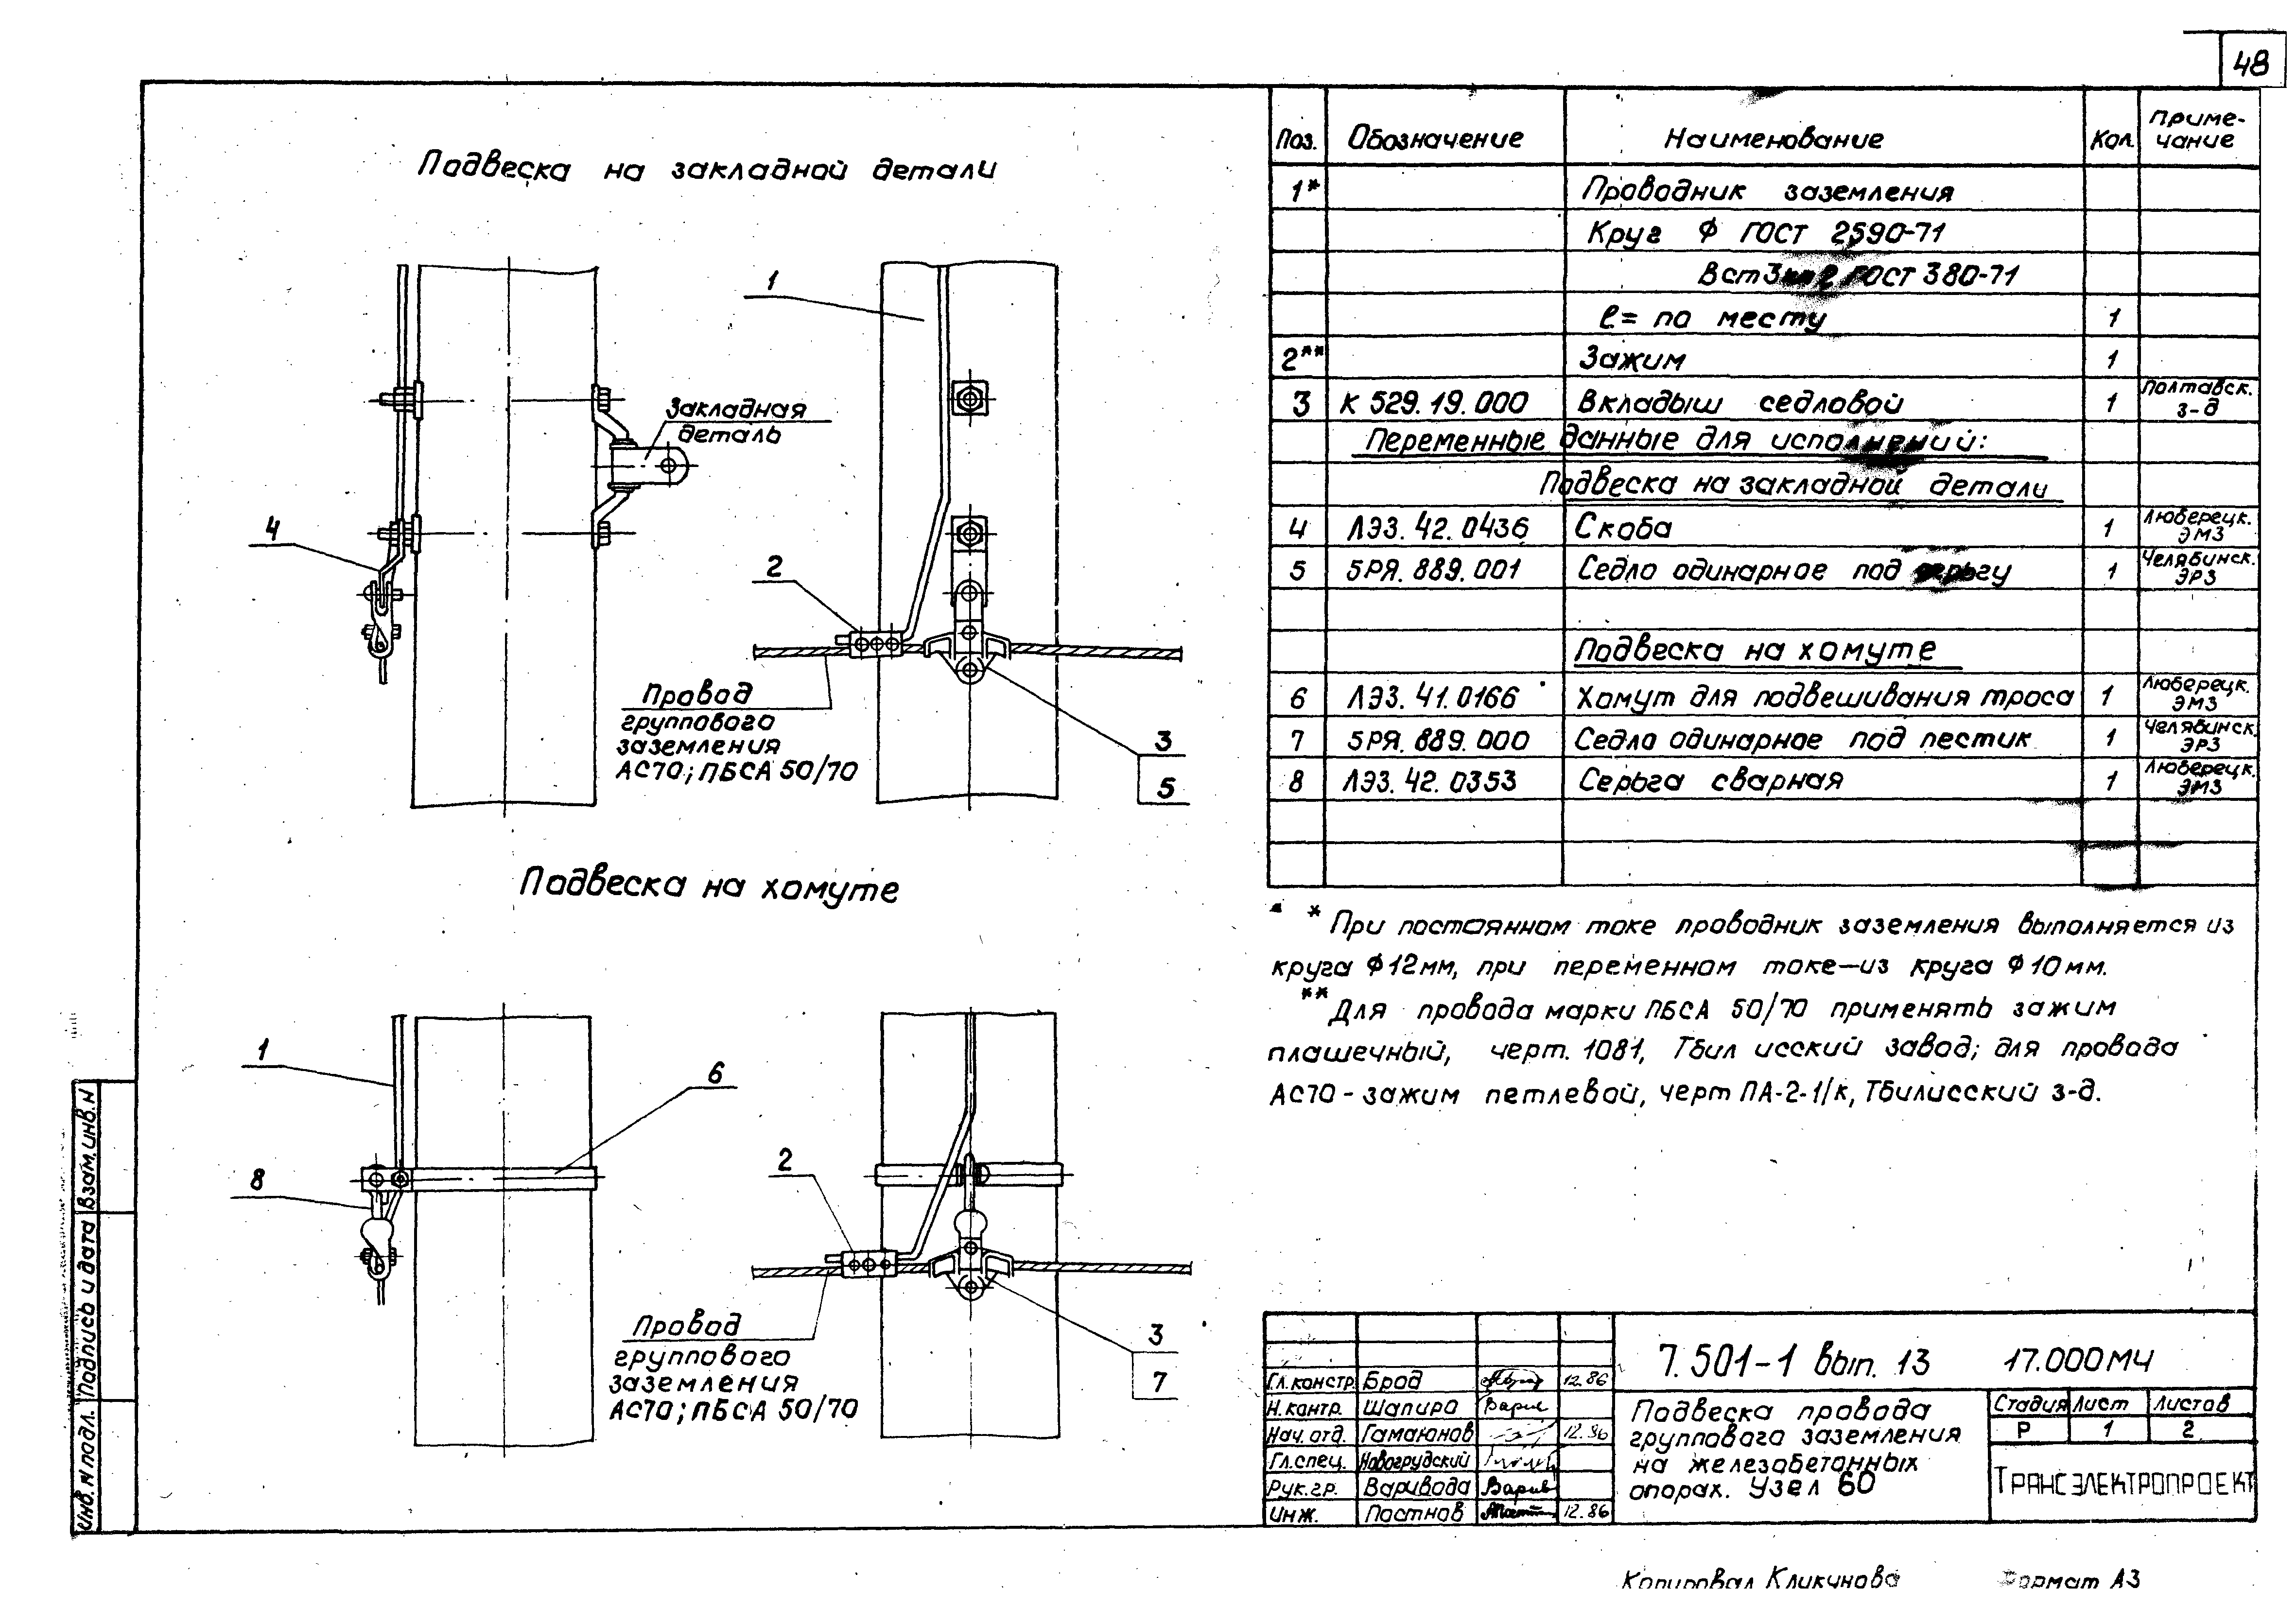 48
Подвеска на закладной детали
1
Закладная
деталь
4
2
Провод
группового
заземления
АС70; ПБСА 50/70
3
5
Подвеска на хомуте
1
6
8
2
Провод
группового
заземления
АС70; ПБСА 50/70
3
7
Поз. Обозначение Наименование Кол. Приме-
чание
1* Проводник заземления
Круг Ф ГОСТ 2590-71
ГОСТ 380-71
ℓ= по месту 1
2** Зажим 1
3 К 529.19.000 Вкладыш седловой 1 Полтавск.
з-д
Переменные данные для исполнений:
Подвеска на закладной детали
4 ЛЭЗ.42.0436 Скоба 1 Люберецк.
ЭМЗ
5 5РЯ.889.001 Седло одинарное под серьгу 1 Челябинск.
ЭРЗ
Подвеска на хомуте
6 ЛЭЗ.41.0166 Хомут для подвешивания троса 1 Люберецк.
ЭМЗ
7 5РЯ.889.000 Седло одинарное под пестик 1 Челябинск.
ЭРЗ
8 ЛЭЗ.42.0353 Серьга сварная 1 Люберецк.
ЭМЗ
* При постоянном токе проводник заземления выполняется из
круга Ф12мм, при переменном токе—из круга Ф10мм.
** Для провода марки ПБСА 50/70 применять зажим
плашечный, черт. 1081, Тбилисский завод; для провода
АС70 - зажим петлевой, черт ПА-2-1/к, Тбилисский з-д.
7.501-1 вып. 13 17.000МЧ
Гл.констр. Брод 12.86
Н.контр. Шапиро
Нач.отд. Гамаюнов 12.86
Гл.спец. Новогрудский
Рук.гр. Варивода
Инж. Постнов 12.86
Подвеска провода
группового заземления
на железобетонных
опорах. Узел 60
Стадия Лист Листов
Р 1 2
ТРАНСЭЛЕКТРОПРОЕКТ
Инв.N подл. Подпись и дата Взам.инв.N
Копировал Кликинова Формат А3